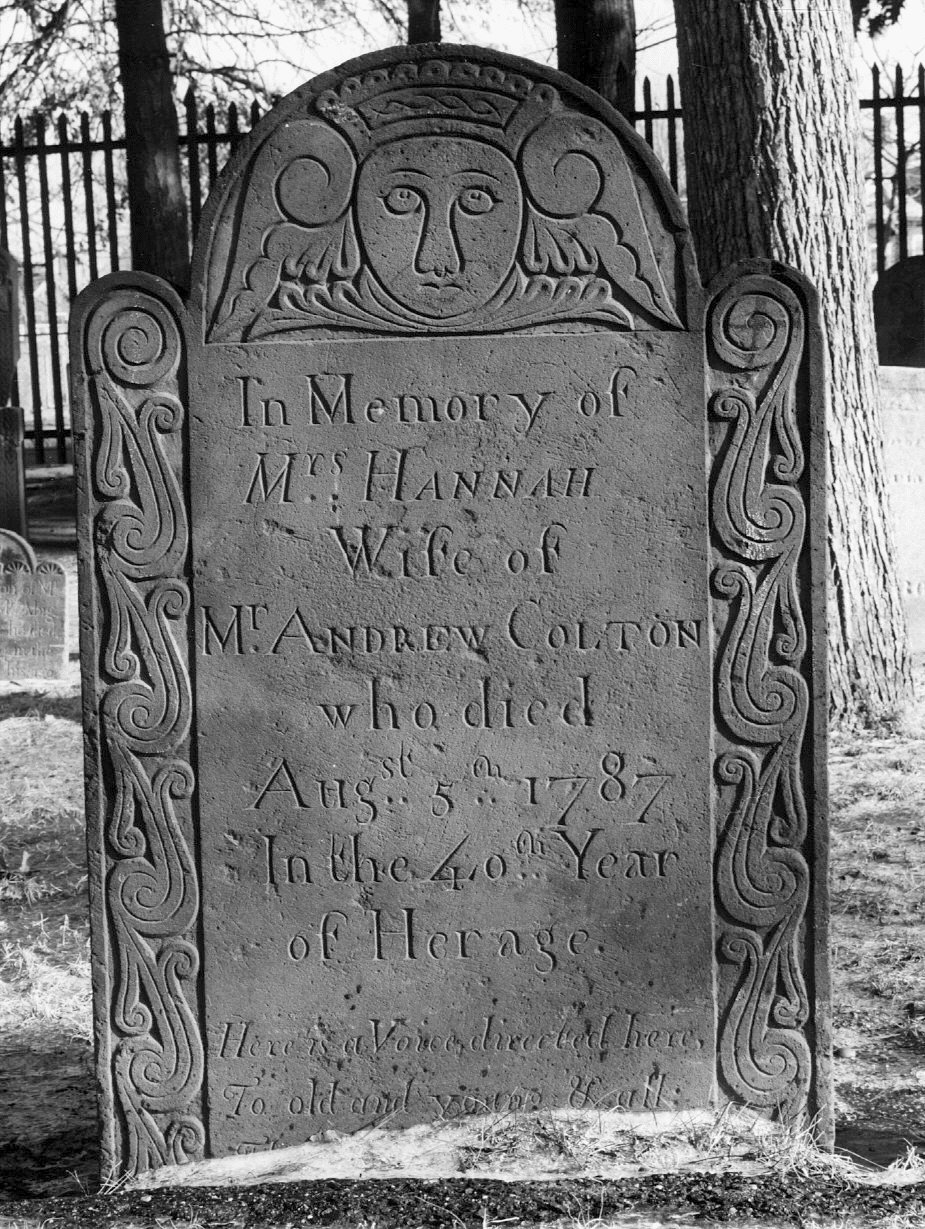 In Memory of
Mrs. HANNAH
Wife of
Mr. ANDREW COLTON
who died
Augst. 5th. 1787
In the 40th. Year
of Her age.
Here is a Voice directed here,
To old and young & all: